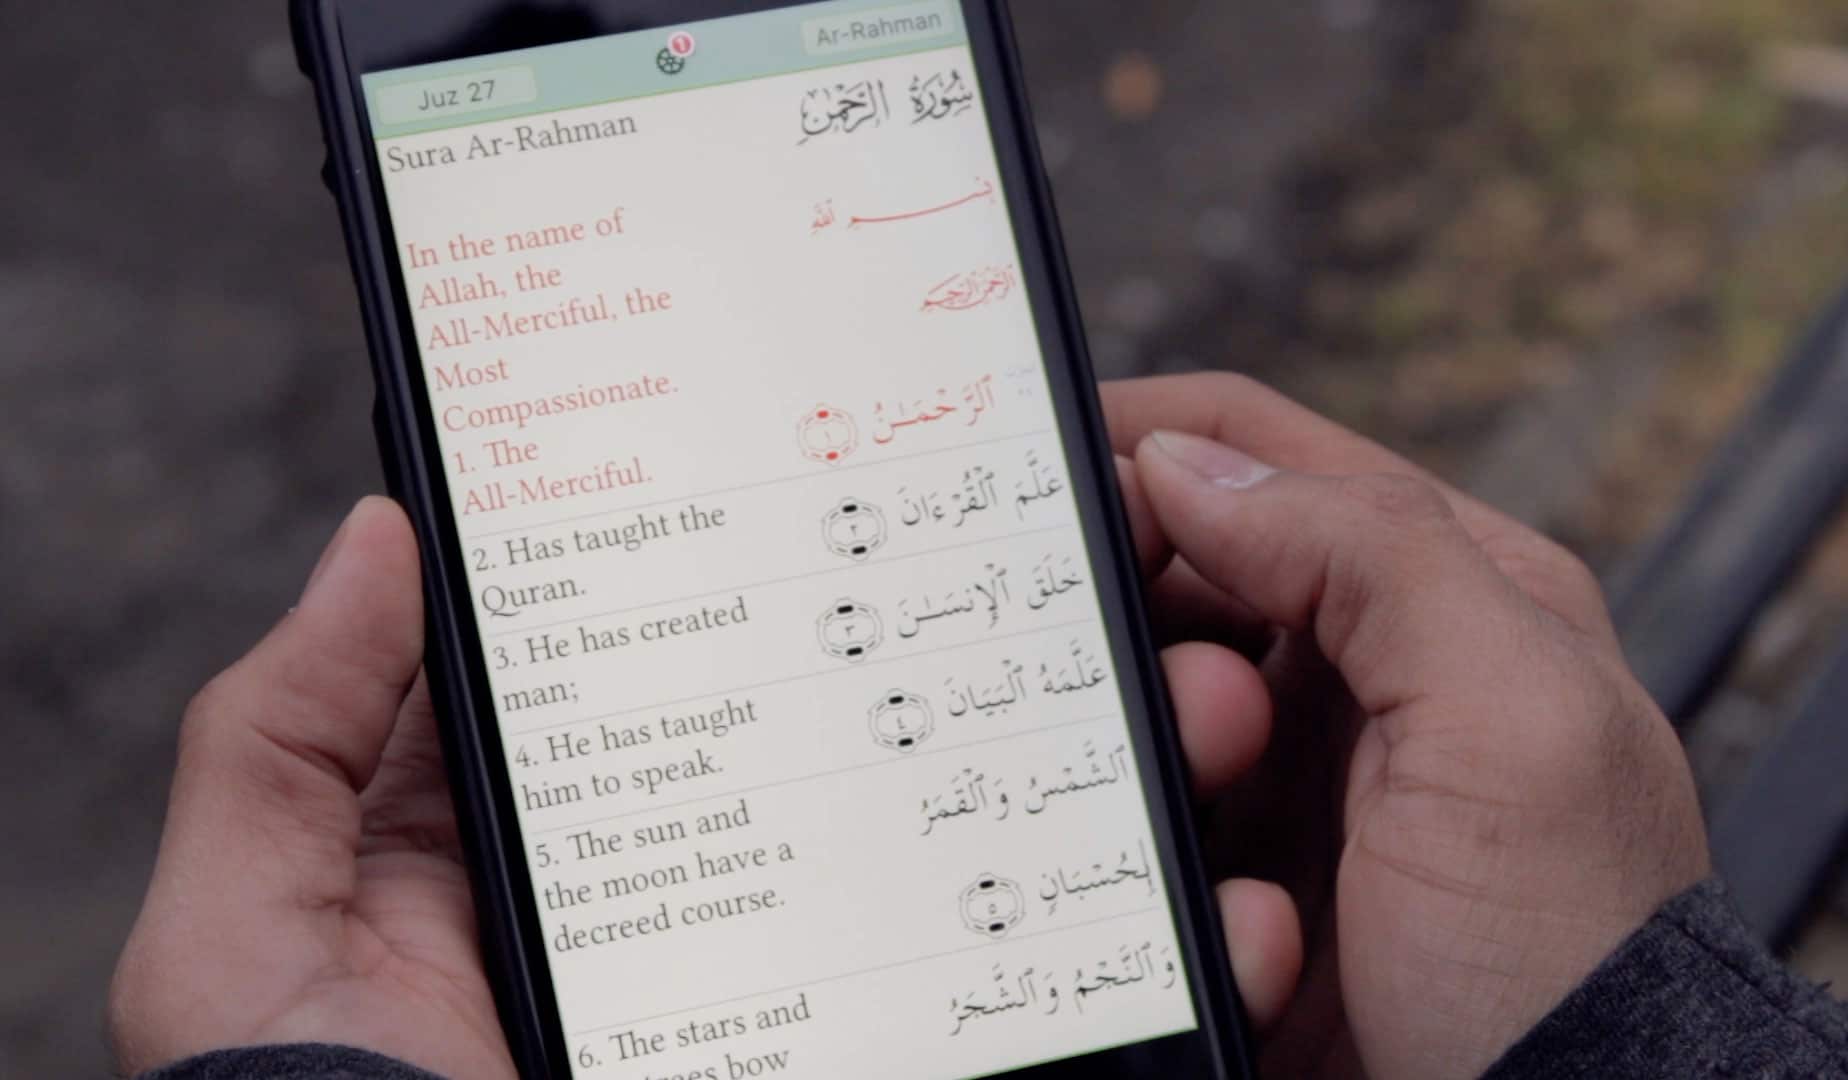 Juz 27
1
Ar-Rahman
Sura Ar-Rahman
سُورَةُ الرَّحْمَٰن
In the name of
Allah, the
All-Merciful, the
Most
Compassionate.
بِسْمِ ٱللَّهِ
ٱلرَّحْمَٰنِ ٱلرَّحِيمِ
1. The
All-Merciful.
ٱلرَّحْمَـٰنُ ١
2. Has taught the
Quran.
عَلَّمَ ٱلْقُرْءَانَ ٢
3. He has created
man;
خَلَقَ ٱلْإِنسَـٰنَ ٣
4. He has taught
him to speak.
عَلَّمَهُ ٱلْبَيَانَ ٤
5. The sun and
the moon have a
decreed course.
ٱلشَّمْسُ وَٱلْقَمَرُ
بِحُسْبَانٍ ٥
6. The stars and
bow
وَٱلنَّجْمُ وَٱلشَّجَرُ